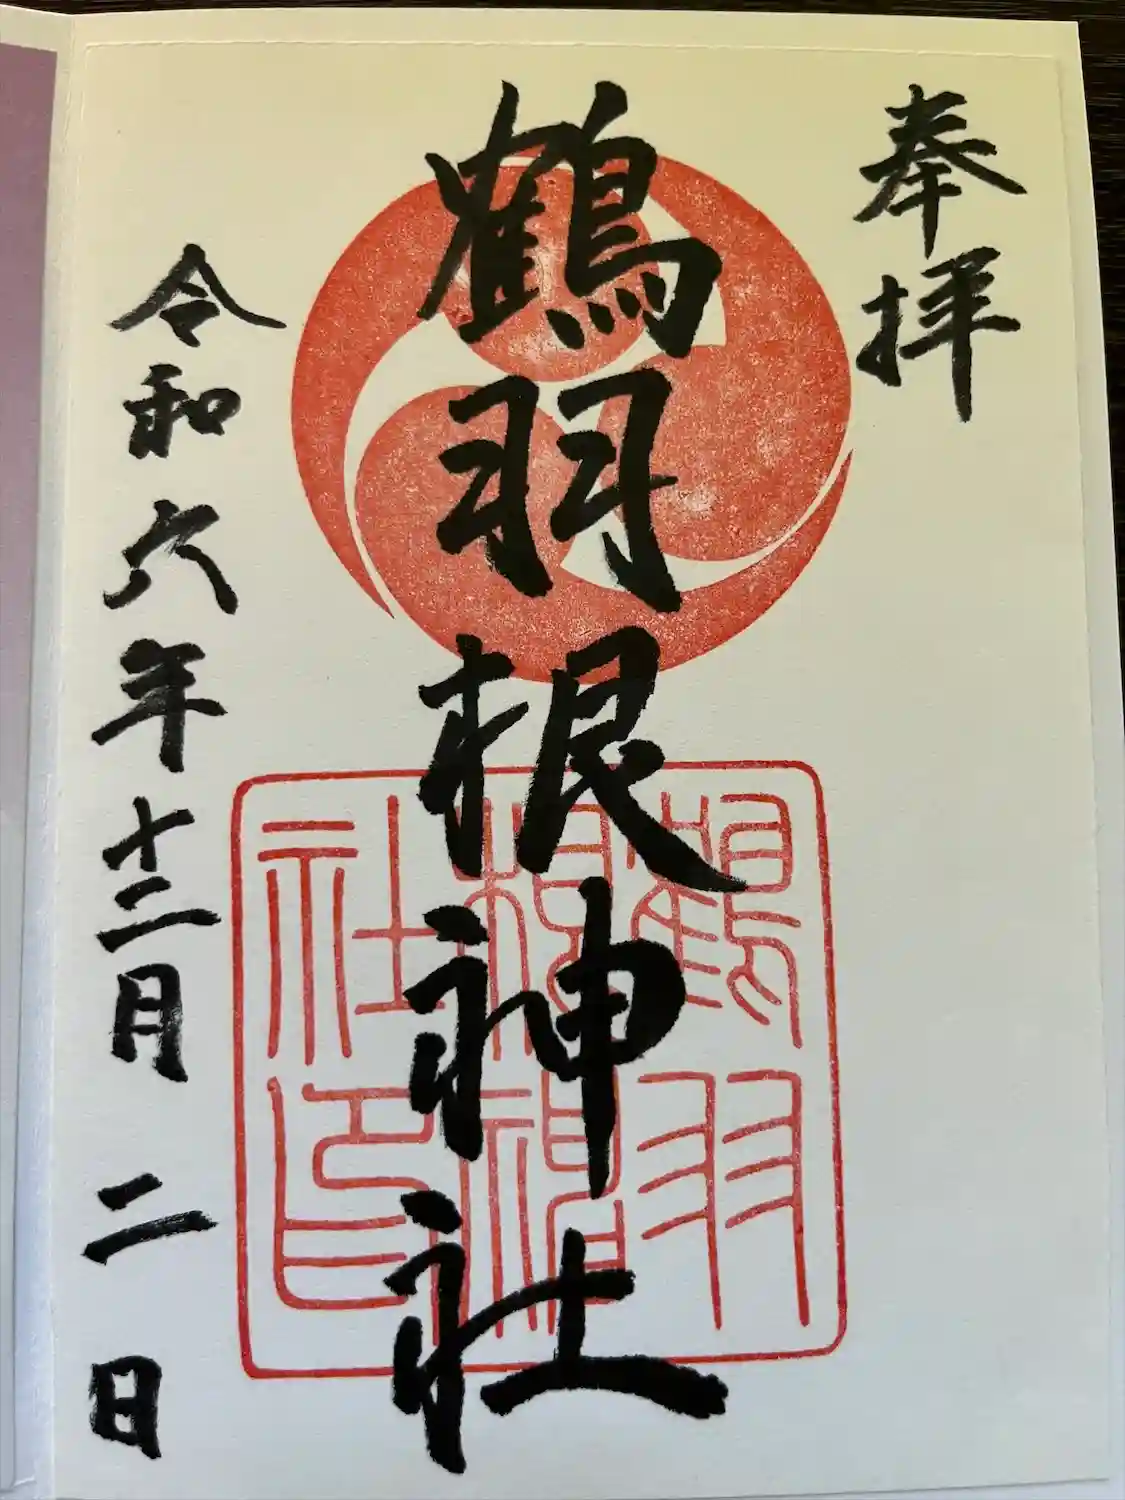 奉拝
鶴羽根神社
令和六年十二月二日
鶴羽根神社印